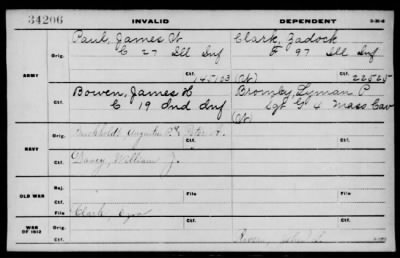 34206 INVALID DEPENDENT
ARMY
Orig. Paul, James H Clark, Zadock
C 27 Ill Inf F 97 Ill Inf
145103 (Ct) 22525
Ctf. Bowen, James H Bromley, Lyman P
C 19 Ind Inf Sgt G 4 Mass Cav
(Ct)
NAVY
Orig. Augustus
Ctf. Davey, William J.
OLD WAR
Rej. File Ctf. File
Ctf. Clark, Ezra
WAR OF 1812
Orig. Ctf. Ctf.
Ctf.